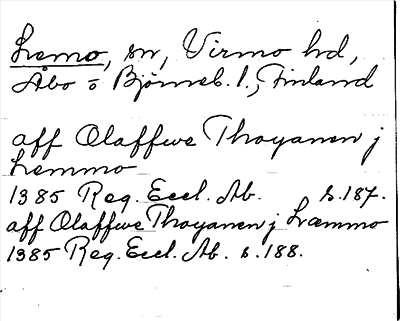 Lemo, sn, Virmo hd,
Åbo o Björneb. l., Finland
aff Olaffwe Thoyanen j
Læmmo
1385 Reg. Eccl. Ab. s. 187.
aff Olaffwe Thoyanen j Læmmo
1385 Reg. Eccl. Ab. s. 188.